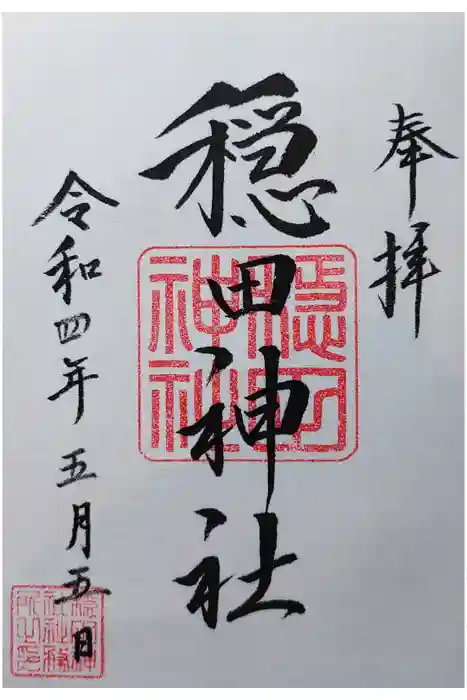 奉拝
穏田神社
令和四年五月五日
穏田
神社